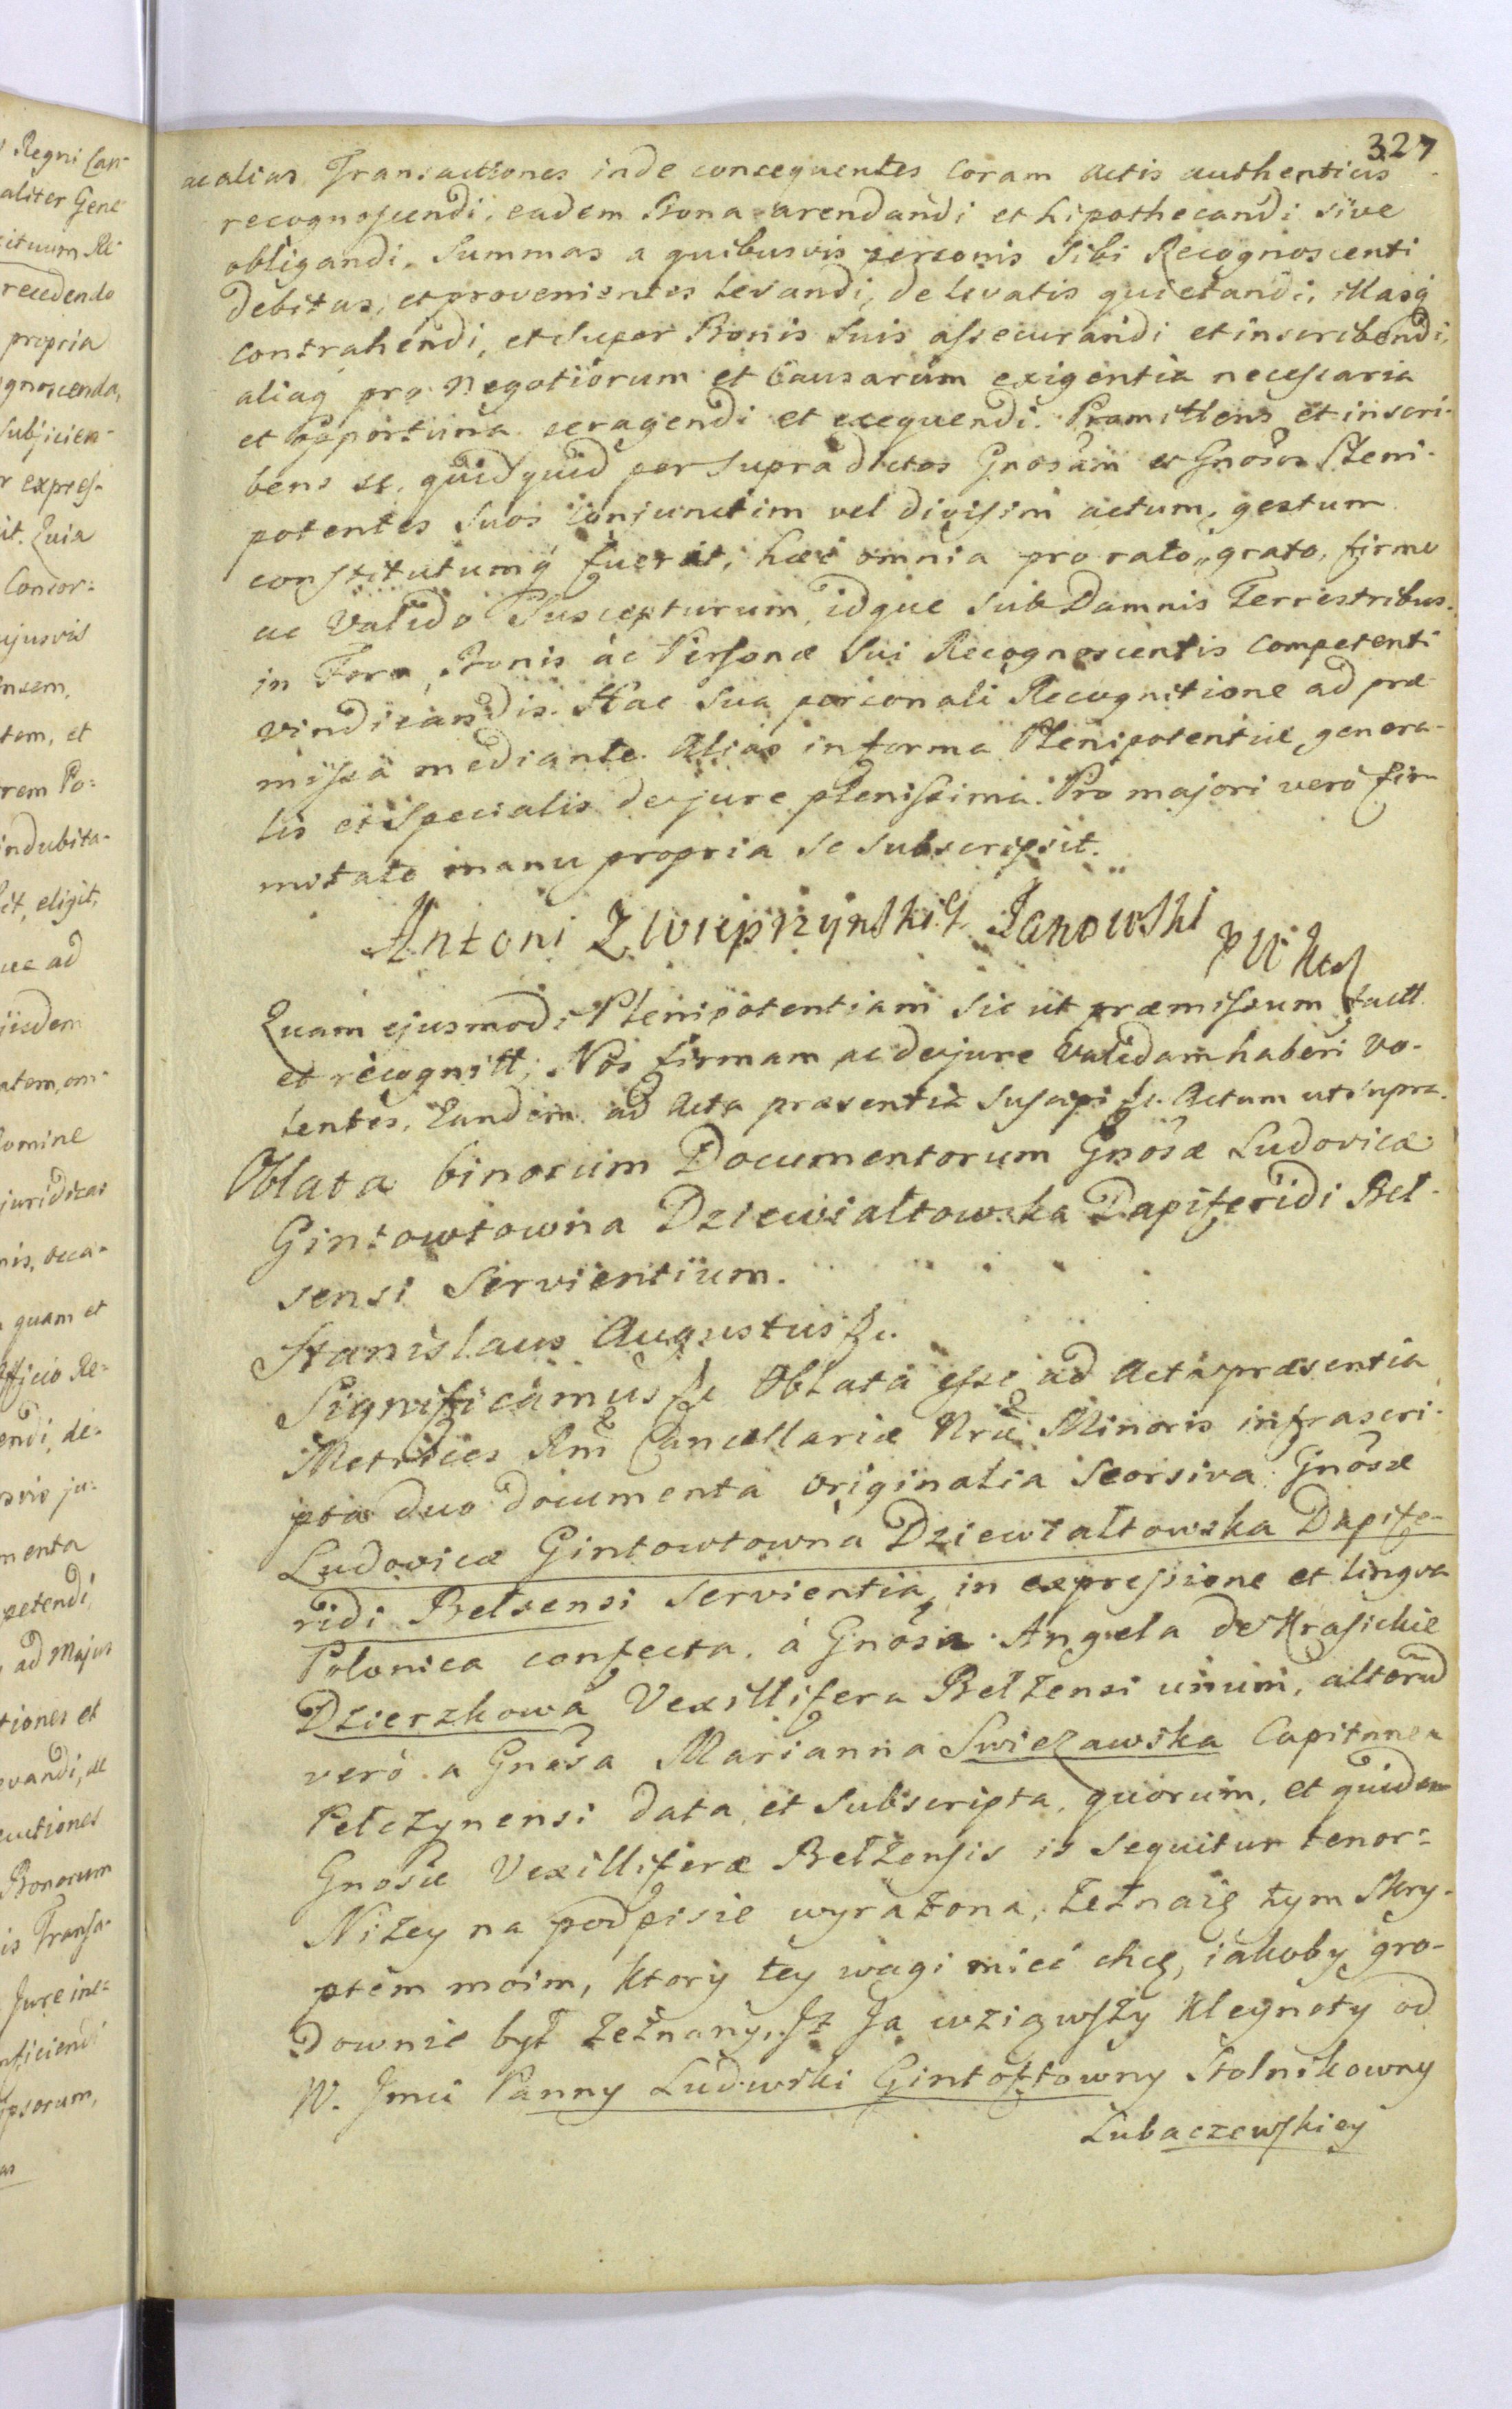 327
ac alias Transactiones inde consequentes coram Actis authenticis
recognoscendi, eadem Bona arendandi et hipothecandi sive
obligandi, Summas a quibusvis personis Sibi Recognoscenti
debitas, et provenientes levandi, de levatis quietandi, illasq́
contrahendi, et super Bonis suis assecurandi et inscribendi,
aliaq́ pro Negotiorum et Causarum exigentia necessaria
et opportuna peragendi et exequendi. Promittens et inscri-
bens se, quidquid per supradictos Gnosam et Gnosos Pleni-
potentes suos conjunctim vel divisim actum, gestum
constitutumq́ fuerit, hæc omnia pro rato, grato, firmo
ac valido suscepturum, idque sub Damnis Terrestribus.
in Foro, Bonis ac Personæ sui Recognoscentis competenti
vindicandis. Hac sua personali Recognitione ad præ-
missa mediante. Alias in forma Plenipotentiæ genera-
lis et specialis de jure plenissima. Pro majori vero fir-
mitate manu propria se subscripsit.
Antoni Zwieprzynski Janowski
Quam ejusmodi Plenipotentiam sic ut præmissum factt
et recognitt, Nos firmam ac de jure validam haberi vo-
lentes, Eandem ad Acta præsentia suscepi &c. Actum ut supra.
Oblata binorum Documentorum Gnosæ Ludovicæ
Gintowtowna Dziewialtowska Dapiferidi Bel-
sensi Servientium.
Stanislaus Augustus &c.
Significamus &c Oblata esse ad Acta præsentia
Metrices Rni Cancellariæ Nræ Minoris infrascri-
pta duo documenta originalia seorsiva Gnosæ
Ludovicæ Gintowtowna Dziewialtowska Dapife-
ridi Belsensi Servientia, in expressione et lingva
Polonica confecta. à Gnosa Angela de Krasickie
Dzierzkowa Vexillifera Belzensi unum, alterũ
verò a Gnosa Marianna Swiezawska Capitanea
Pelczynensi data et subscripta, quorum, et quidem
Gnosæ Vexilliferæ Belzensis is sequitur tenor:
Niżey na podpisie wyrażona, zeznaię tym Skry-
ptem moim, ktory tey wagi mieć chcę, iakoby gro-
downie był zeznany, Iż Ja wziąwszy Kleynoty od
W. Jmci Panny Ludwiki Gintoftowny Stolnikowny
Lubaczewskiey